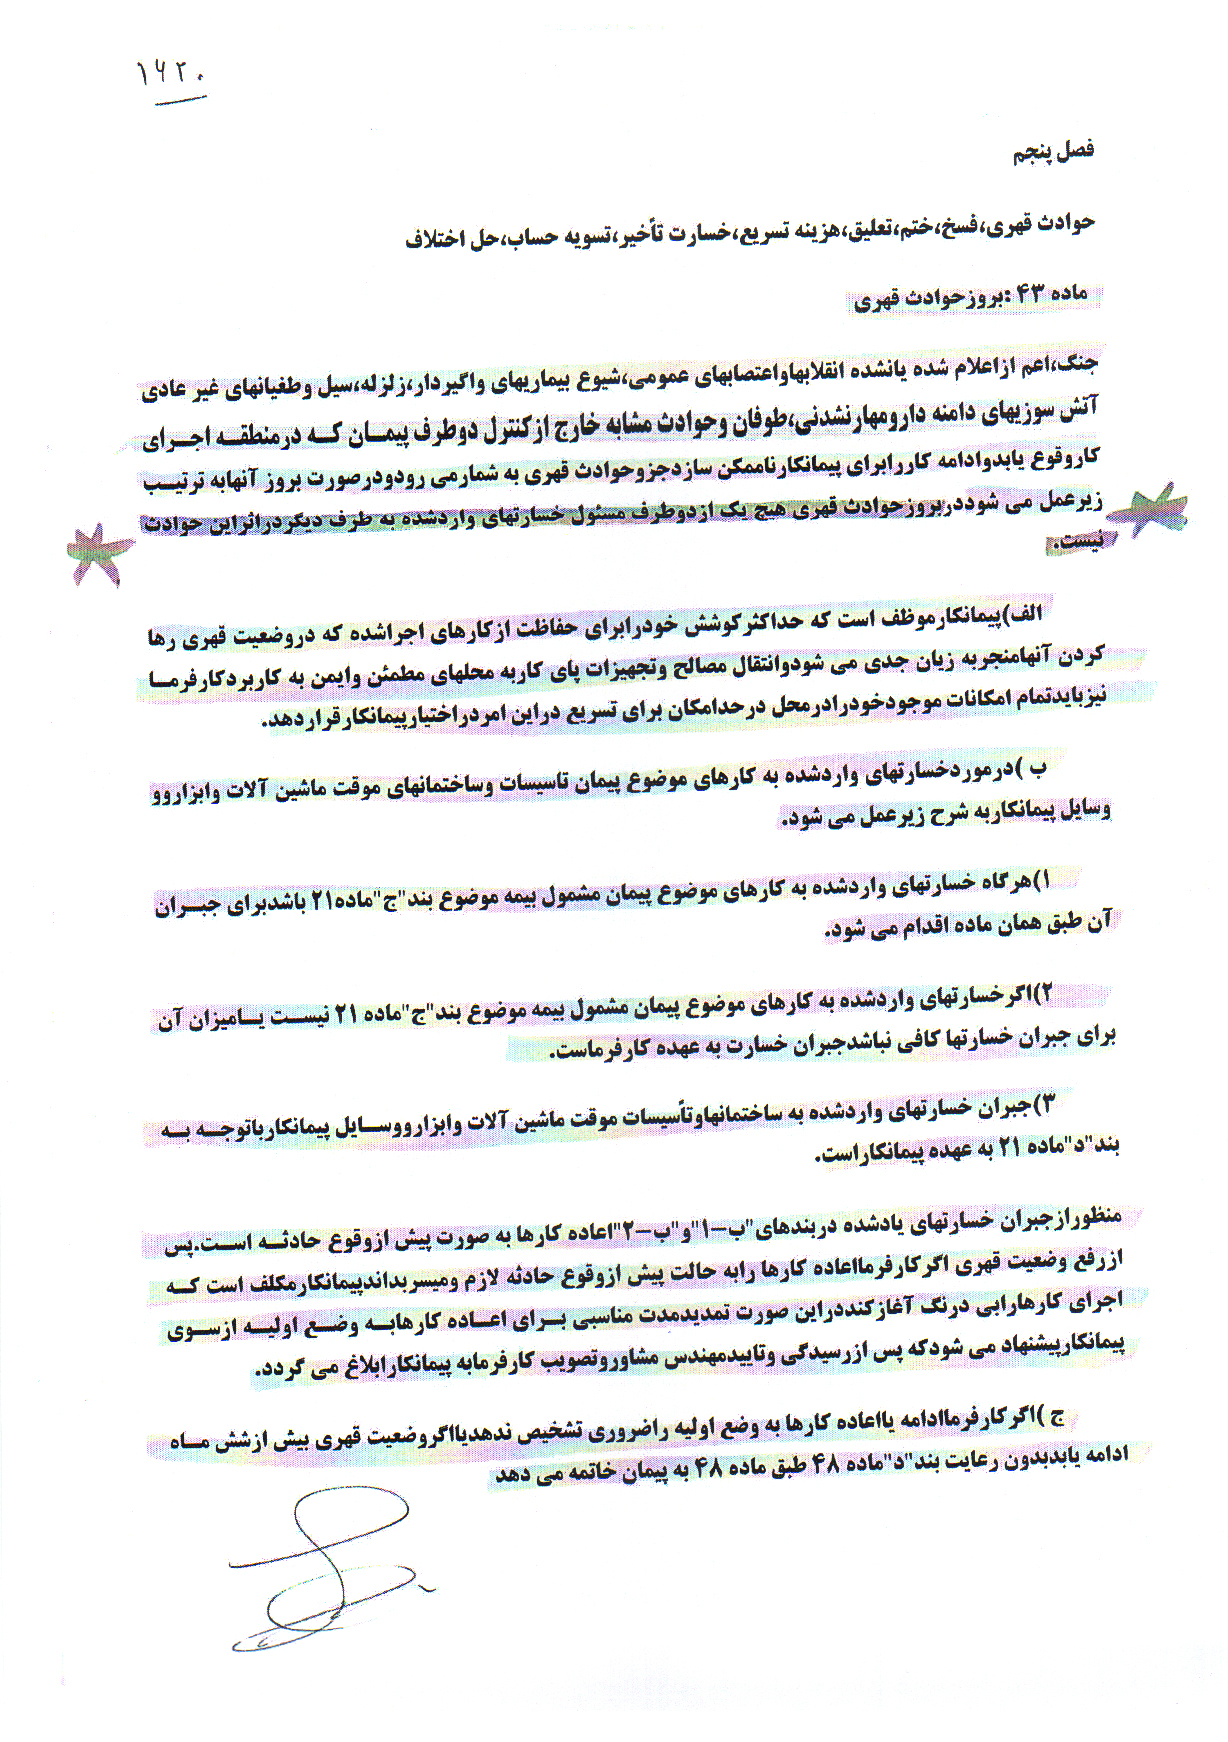 ۱۶۲۰
فصل پنجم
حوادث قهری،فسخ،ختم،تعلیق،هزینه تسریع،خسارت تأخیر،تسویه حساب،حل اختلاف
ماده ۴۳ :بروزحوادث قهری
جنگ،اعم ازاعلام شده یانشده انقلابهاواعتصابهای عمومی،شیوع بیماریهای واگیردار،زلزله،سیل وطغیانهای غیر عادی
آتش سوزیهای دامنه دارومهارنشدنی،طوفان وحوادث مشابه خارج ازکنترل دوطرف پیمان که درمنطقه اجرای
کاروقوع یابدوادامه کاررابرای پیمانکارناممکن سازدجزوحوادث قهری به شمارمی رودودرصورت بروز آنهابه ترتیب
زیرعمل می شوددربروزحوادث قهری هیچ یک ازدوطرف مسئول خسارتهای واردشده به طرف دیگردراثراین حوادث
نیست.
الف)پیمانکارموظف است که حداکثرکوشش خودرابرای حفاظت ازکارهای اجراشده که دروضعیت قهری رها
کردن آنهامنجربه زیان جدی می شودوانتقال مصالح وتجهیزات پای کاربه محلهای مطمئن وایمن به کاربردکارفرما
نیزبایدتمام امکانات موجودخودرادرمحل درحدامکان برای تسریع دراین امردراختیارپیمانکارقراردهد.
ب )درموردخسارتهای واردشده به کارهای موضوع پیمان تاسیسات وساختمانهای موقت ماشین آلات وابزاروو
وسایل پیمانکاربه شرح زیرعمل می شود.
۱)هرگاه خسارتهای واردشده به کارهای موضوع پیمان مشمول بیمه موضوع بند"ج"ماده۲۱ باشدبرای جبران
آن طبق همان ماده اقدام می شود.
۲)اگرخسارتهای واردشده به کارهای موضوع پیمان مشمول بیمه موضوع بند"ج"ماده ۲۱ نیست یامیزان آن
برای جبران خسارتها کافی نباشدجبران خسارت به عهده کارفرماست.
۳)جبران خسارتهای واردشده به ساختمانهاوتأسیسات موقت ماشین آلات وابزارووسایل پیمانکارباتوجه به
بند"د"ماده ۲۱ به عهده پیمانکاراست.
منظورازجبران خسارتهای یادشده دربندهای"ب-۱"و"ب-۲"اعاده کارها به صورت پیش ازوقوع حادثه است.پس
ازرفع وضعیت قهری اگرکارفرمااعاده کارها رابه حالت پیش ازوقوع حادثه لازم ومیسربداندپیمانکارمکلف است که
اجرای کارهارابی درنگ آغازکنددراین صورت تمدیدمدت مناسبی برای اعاده کارهابه وضع اولیه ازسوی
پیمانکارپیشنهاد می شودکه پس ازرسیدگی وتاییدمهندس مشاوروتصویب کارفرمابه پیمانکارابلاغ می گردد.
ج )اگرکارفرماادامه یااعاده کارها به وضع اولیه راضروری تشخیص ندهدیااگروضعیت قهری بیش ازشش ماه
ادامه یابدبدون رعایت بند"د"ماده ۴۸ طبق ماده ۴۸ به پیمان خاتمه می دهد